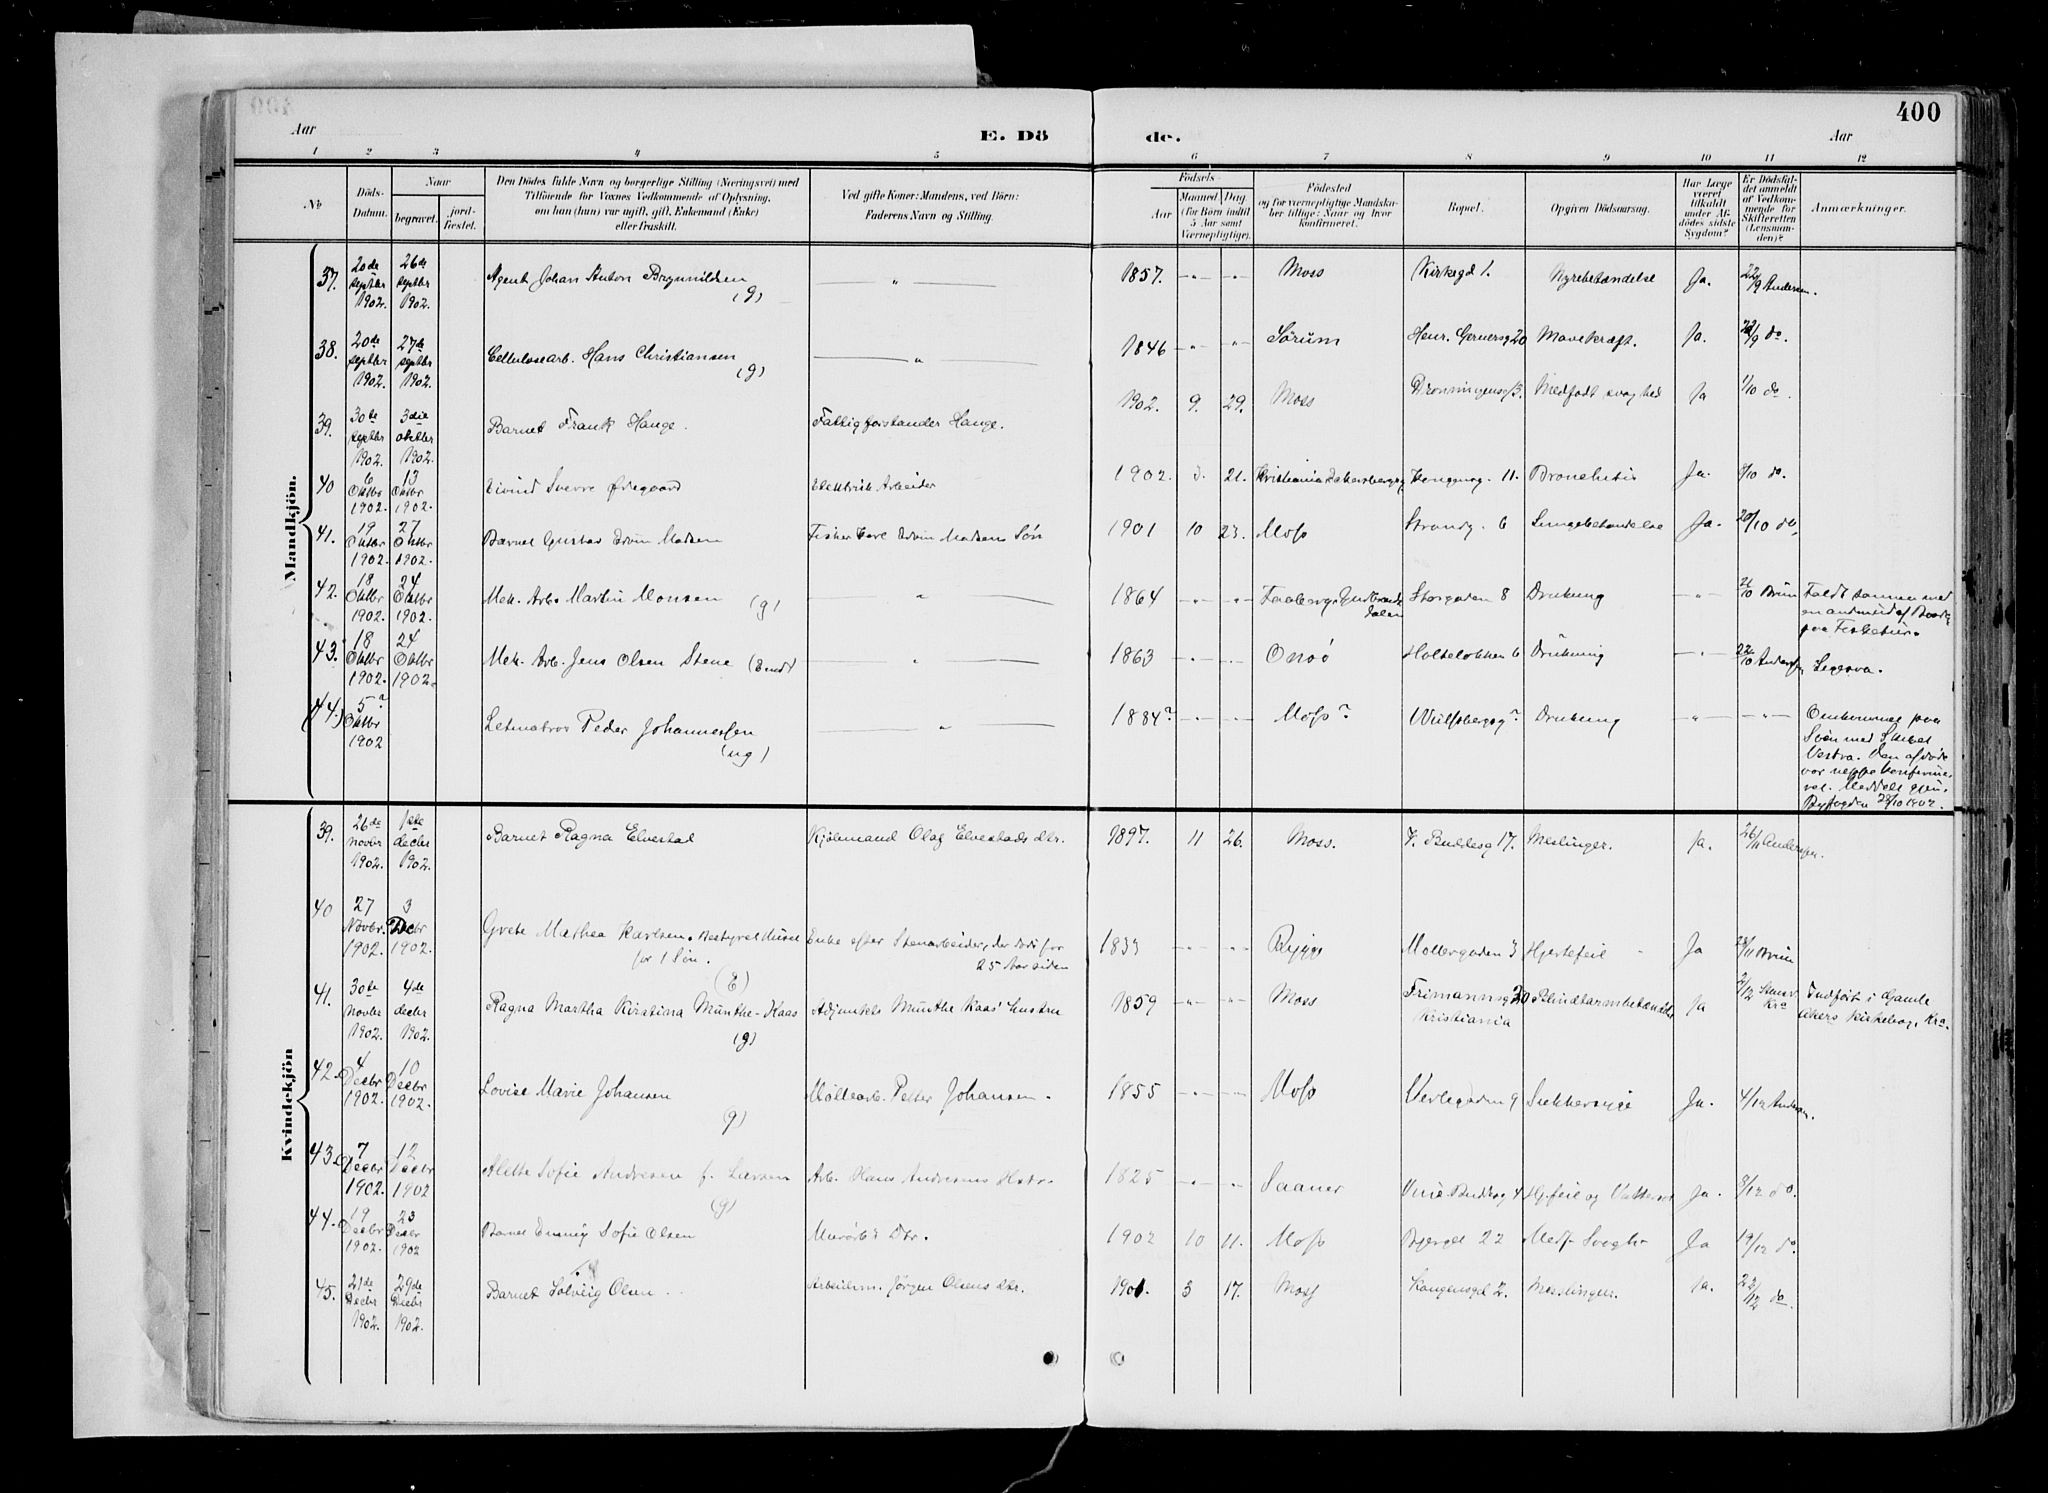 400
Aar
E. Dö
de.
Aar
1 2 3 4 5 6 7 8 9 10 11 12
No
Döds-
Datum.
Naar
begravet.
jord-
fæstet.
Den Dödes fulde Navn og borgerlige Stilling (Næringsvei) med
Tilföiende for Voxnes Vedkommende af Oplysning,
om han (hun) var ugift, gift, Enkemand (Enke)
eller fraskilt.
Ved gifte Koner: Mandens, ved Börn:
Faderens Navn og Stilling.
Födsels-
Aar
Maaned
Dag
(for Börn indtil
5 Aar samt
Værnepligtige).
Födested
og for værnepligtige Mandskaber tillige: Naar og hvor
konfirmeret.
Bopæl.
Opgiven Dödsaarsag.
Har Læge
været
tilkaldt
under Afdödes sidste
Sygdom?
Er Dödsfaldet anmeldt
af Vedkommende for
Skifteretten
(Lensmanden)?
Anmærkninger.
Mandkjön.
37. 20de septbr 1902. 26de septbr 1902. Agent Johan Anton Brynildsen (g) " 1857. Moss Kirkegd 1. Nyrebetændelse Ja. 22/9 Andersen.
38. 20de septbr 1902. 27de septbr 1902. Cellulosearb. Hans Christiansen (g) " 1846 Sörum Henr. Gernersg 20 Mavekræft. Ja. 22/9 do.
39. 30te septbr 1902. 3die oktbr 1902. Barnet Frank Hauge. Fattigforstander Hauge. 1902. 9. 29. Moss Dronningensg 13. Medfödt svaghed Ja 1/10 do.
40 6 Oktbr 1902. 13 Oktbr 1902. Eivind Sverre Ödegaard Elektrisk Arbeider 1902. 21. Kristiania Kongensg. 11. Bronchitis Ja. 8/10 do.
41. 19 Oktbr 1902. 27 Oktbr 1902. Barnet Gustav Edvin Madsen Fisker Carl Edvin Madsens Sön 1901 10 23. Moss Strandg. 6 Lungebetændelse Ja. 20/10 do.
42. 18 Oktbr 1902. 24 Oktbr 1902. Mek. Arb. Martin Monsen (g) " 1864 Faaberg, Gudbrandsdalen Storgaden 8 Drukning 21/10 Bruun Faldt sammen med
en anden ud af Baad
paa Fisketur.
43. 18 Oktbr 1902. 24 Oktbr 1902. Mek. Arb. Jens Olsen Stene (Emd) " 1863 Onsö Holtelökken 6 Drukning 22/10 Andersen Ligesaa.
(44.) 5? Oktbr 1902 Letmatros Peder Johannessen (ug) " 1884? Moss? Wulfsbergsg? Drukning Omkommet paa
Söen med Skibet
Vestra. Den afdöde
var neppe konfirme-
ret. Meddelt gjen.
Byfogden 28/10 1902.
Kvindekjön
39. 26de novbr 1902. 1ste decbr 1902. Barnet Ragna Elvestad Kjölemand Olaf Elvestads dtr. 1897. 11 26. Moss. V. Buddesg 17. Meslinger. Ja. 26/11 Andersen.
40 27 Novbr. 1902. 3 Decbr 1902. Grete Mathea Karlsen. Bestyret Huset
for 1 Sön. (E) Enke efter Stenarbeider, der döde for
25 Aar siden 183 Rygge Möllergaden 3 Hjertefeil Ja 28/11 Bruun
41. 30te novbr 1902. 4de decbr 1902. Ragna Martha Kirstina Munthe-Kaas (g) Adjunkts Munthe Kaas' hustru 1859 Moss Frimannsg 20
Kristiania Blindtarmbetændelse Ja 2/12 Kra Indfört i Gamle
Akers Kirkebog, Kra.
42. 4 Decbr 1902. 10 Decbr 1902. Lovise Marie Johansen (g) Möllearb. Petter Johansen. 1855 Moss Verlegaden 9 Sukkersyge Ja. 4/12 Andersen.
43. 7 Decbr 1902. 12 Decbr 1902 Alette Sofie Andresen f. Larsen (g) Arb. Hans Andresens Hstr. 1825 Saaner Buddesg 4 Hj.feil og Vattersot Ja. 8/12 do.
44. 19 Decbr 1902. 23 Decbr 1902 Barnet Sofie Olsen Murarb's Dtr. 1902 10 11. Moss Bjergd 22 Medf. Svagh. Ja 19/12 do.
45. 21de Decbr 1902. 29de Decbr 1902. Barnet Solveig Olsen Arbeiderm. Jörgen Olsens dtr. 1901 3 17. Moss Kongensgd 2. Meslinger. Ja. 22/12 do.